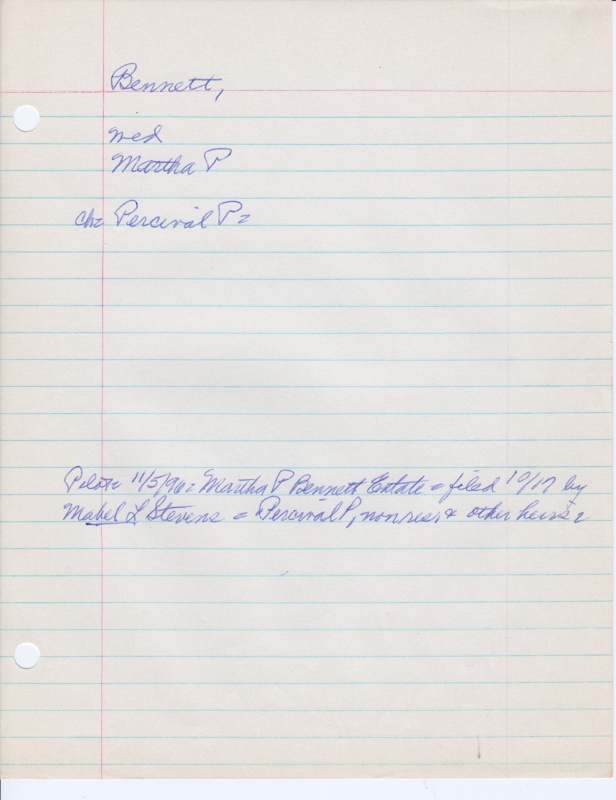 Bennett,
med
Martha P
ch= Percival P=
Pilot= 11/5/96= Martha P Bennett Estate = filed 10/17 by
Mabel L Stevens = Percival P, nonres, & other heirs=